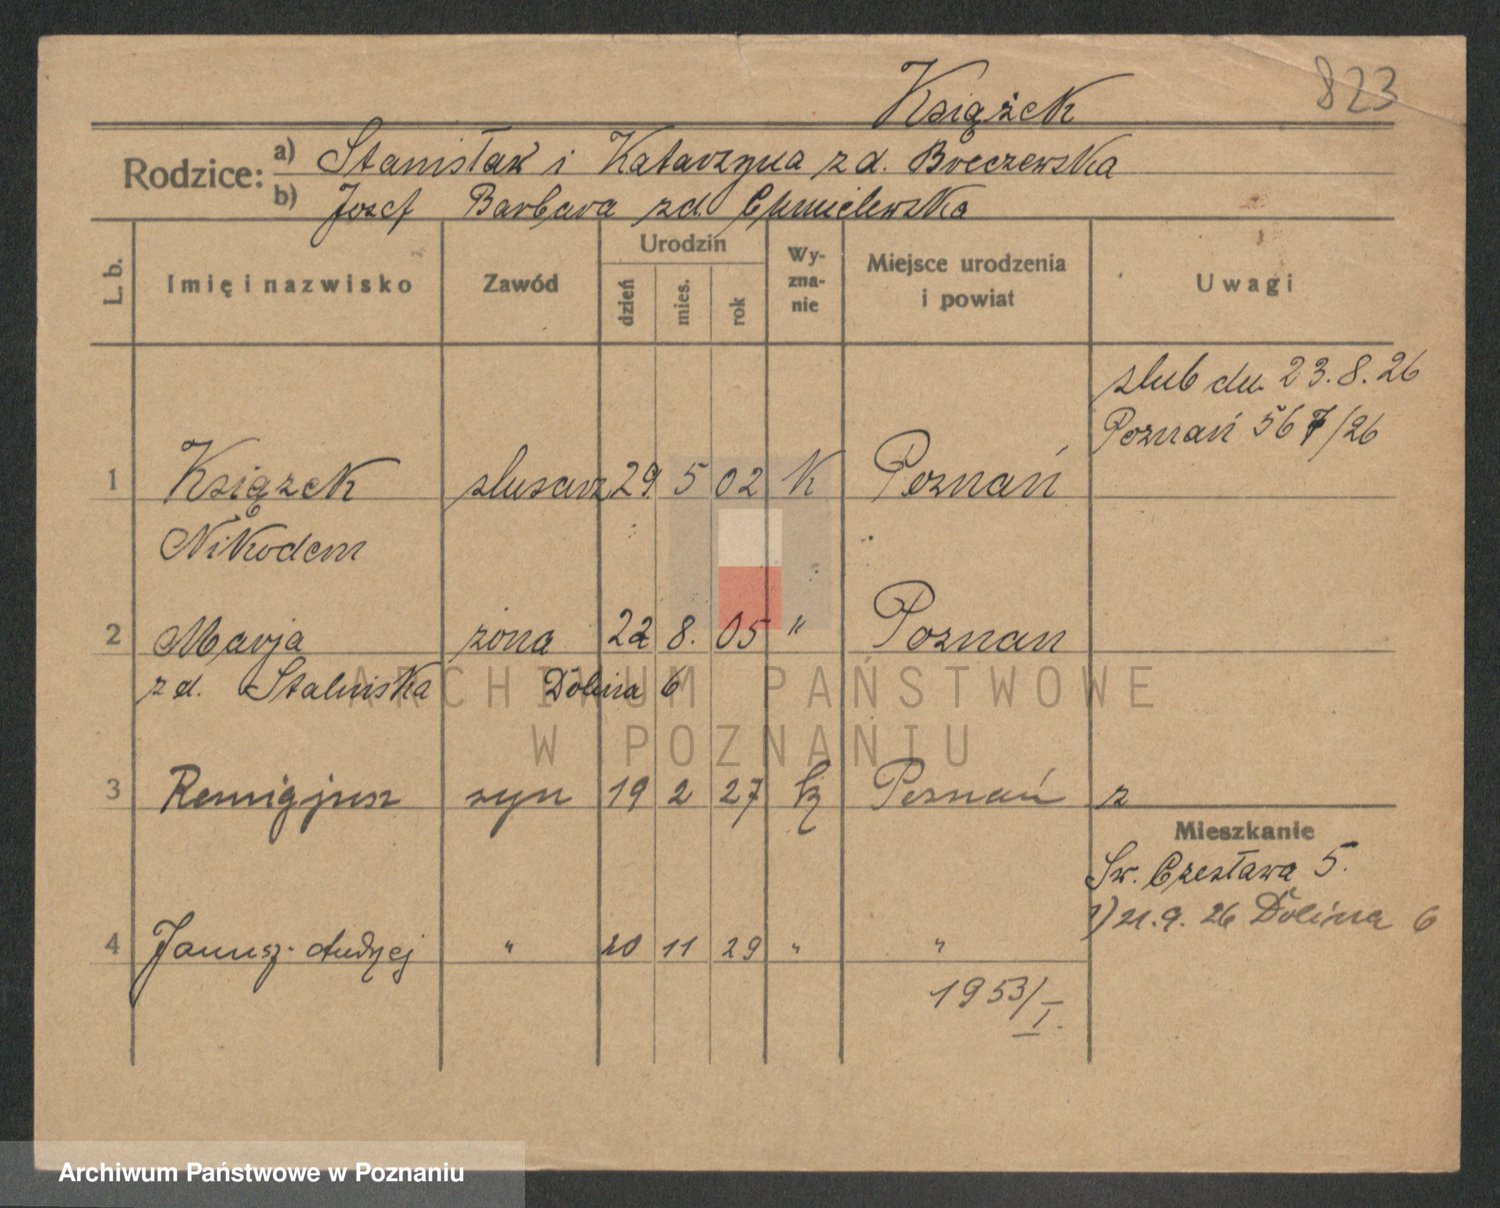 Książek
823
Rodzice:
a) Stanisław i Katarzyna z d. Breczewska
b) Josef Barbara zd. Chmielewska
L. b.
Imię i nazwisko
Zawód
Urodzin
dzień
mies.
rok
Wy-
zna-
nie
Miejsce urodzenia
i powiat
Uwagi
slub dn. 23.8.26
Poznań 567/26
1 Książek slusarz 29. 5 02 K Poznań
Nikodem
2 Marja zona 22 8. 05 " Poznan
z d. Stalinska Dolina 6
ARCHIWUM PAŃSTWOWE
W POZNANIU
3 Remigjusz syn 19 2 27 k Poznań z
Mieszkanie
Sw. Czesława 5.
1) 21.9.26 Dolina 6
4 Janusz-Andrzej " 20 11 29 " "
1953/I.
Archiwum Państwowe w Poznaniu